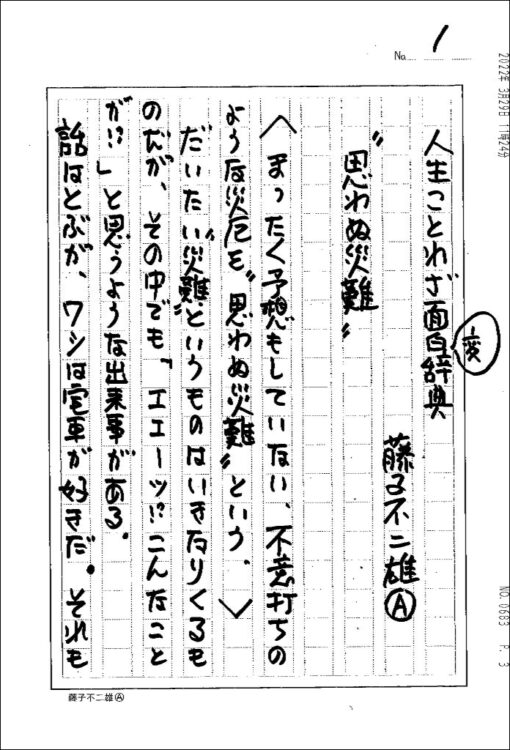 No. 1
2022年 3月29日 11時24分
人生ことわざ面白辞典
変
藤子不二雄Ⓐ
〝思わぬ災難〟
〈まったく予想もしていない、不意打ちの
ような災厄を〝思わぬ災難〟という。〉
だいたい〝災難〟というものはいきなりくるも
のだが、その中でも「エエーッ!?こんなこと
が!?」と思うような出来事がある。
話はとぶが、ワシは電車が好きだ。それも
NO. 0683 P. 3
藤子不二雄Ⓐ